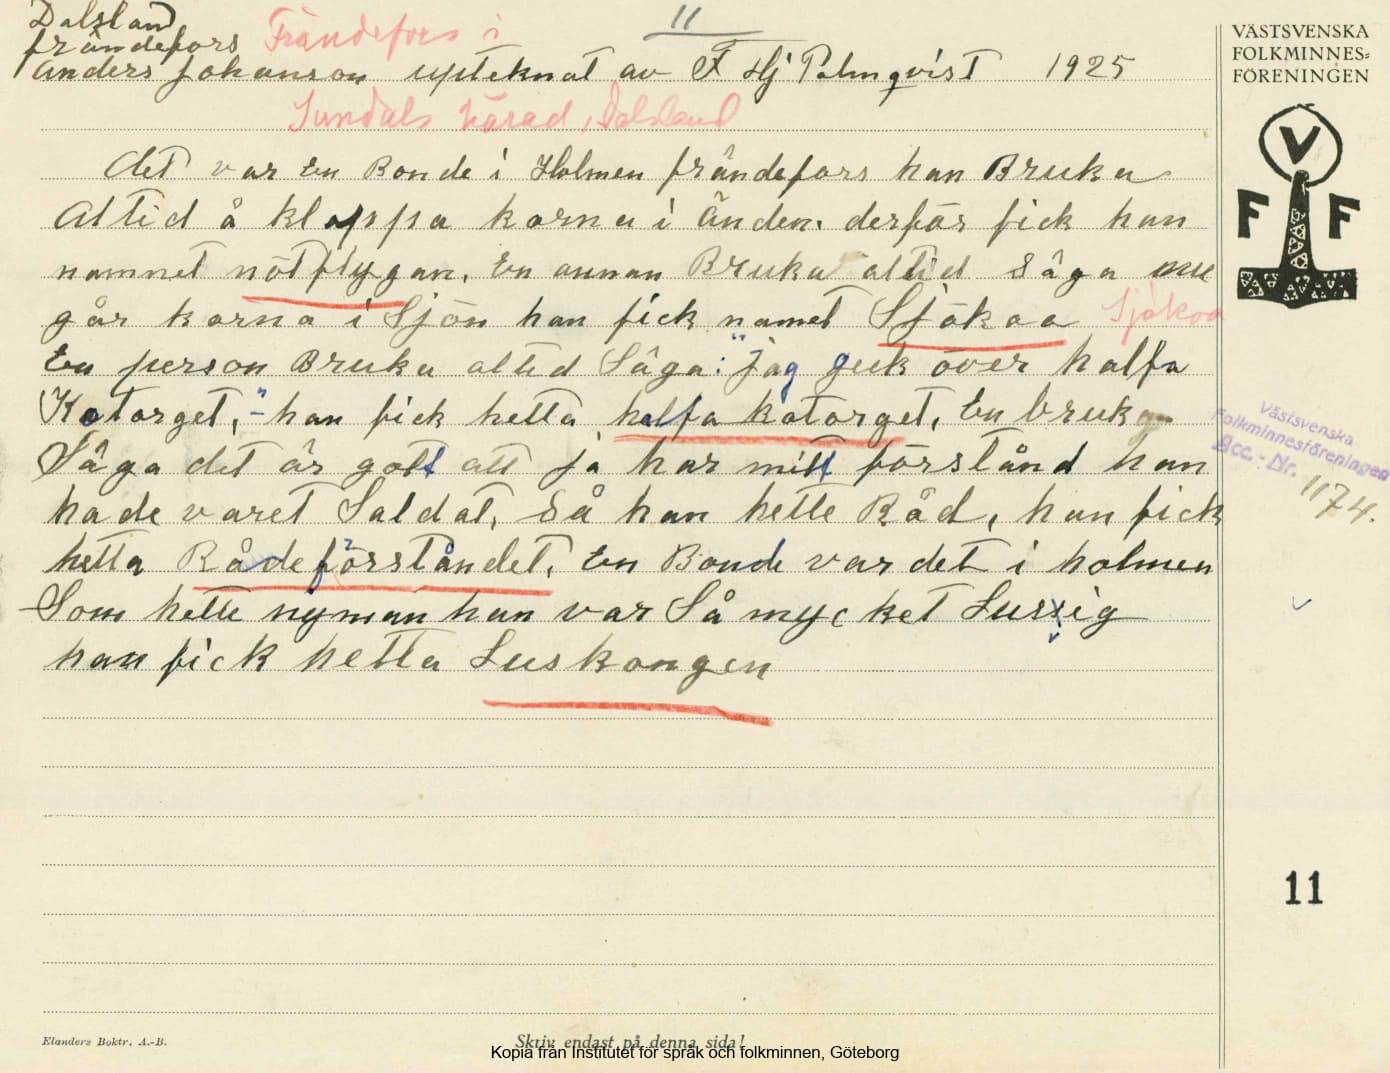 11
Dalsland
frändefors Frändefors i
Anders Johanson upteknat av F Hj Palmqvist 1925
Sundals härad, Dalsland
VÄSTSVENSKA
FOLKMINNES-
FÖRENINGEN
V
F F
det var En Bonde i Holmen frändefors han Bruka
altid å klappa korna i änden. derför fick han
namnet nötflygan. En annan Bruka altid Säga nu
går korna i Sjön han fick namet Sjökoa Sjökoa
En person Bruka altid Säga: "jag geck över halfa
Kotorget,"- han fick hetta halfa kotorget, En bruka
Säga det är gott att ja har mitt förstånd han
hade varet Saldat, Så han hette Råd, han fick
hetta Rådeförståndet, En Bonde var det i holmen
Som hette nyman han var Så mycket Lussig
han fick hetta Luskongen
Västsvenska
Folkminnesföreningen
Acc.-Nr. 1174.
11
Elanders Boktr. A.-B.
Skriv endast på denna sida!
Kopia från Institutet för språk och folkminnen, Göteborg